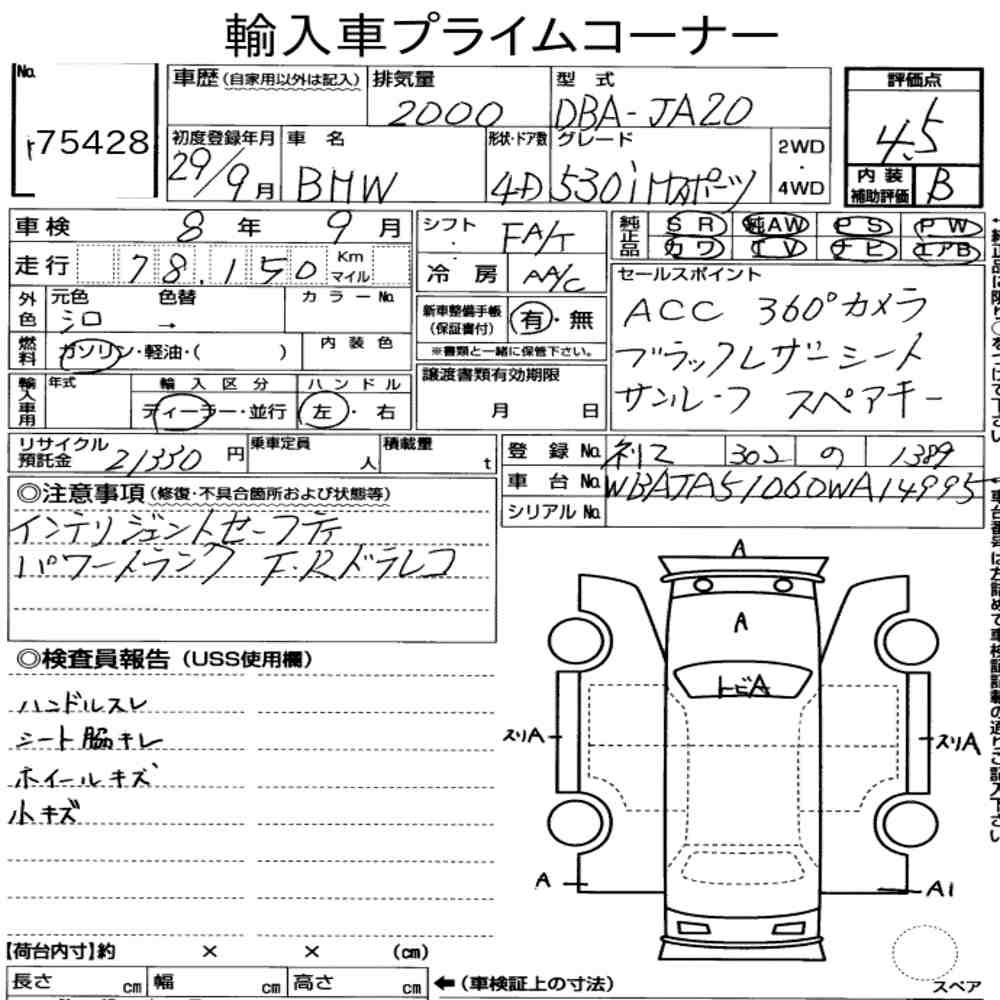 輸入車プライムコーナー
No. 75428
車歴(自家用以外は記入)
排気量 2000
型式 DBA-JA20
評価点 4.5
内装補助評価 B
初度登録年月 29/9月
車名 BMW
形状・ドア数 4D
グレード 530i Mスポーツ
2WD・4WD
車検 8年 9月
シフト FA/T
純正品 SR 純AW PS PW
カワ TV ナビ エアB
走行 78,150 Km マイル
冷房 AA/C
セールスポイント
ACC 360°カメラ
ブラックレザーシート
サンルーフ スペアキー
外色 元色 シロ → 色替 カラーNo.
新車整備手帳(保証書付) 有・無
※書類と一緒に保管下さい。
燃料 ガソリン・軽油・( )
内装色
輸入車用 年式
輸入区分 ディーラー・並行
ハンドル 左・右
譲渡書類有効期限 月 日
リサイクル預託金 21330円
乗車定員 人
積載量 t
登録No. 302 の 1389
車台No. WBAJA51060WA14995
シリアルNo.
◎注意事項(修復・不具合箇所および状態等)
インテリジェントセーフティ
パワートランク F.Rドラレコ
◎検査員報告(USS使用欄)
ハンドルスレ
シート脇キレ
ホイールキズ
小キズ
A
A
トビA
スリA
スリA
A
A1
【荷台内寸】約 × × (cm)
長さ cm 幅 cm 高さ cm
←(車検証上の寸法)
スペア